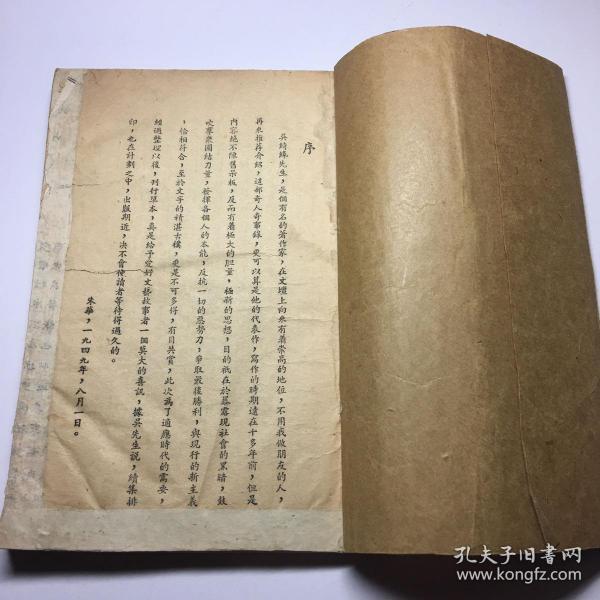 序
吳綺緣先生，是個有名的著作家，在文壇上向來有着崇高的地位，不用我做朋友的人，
再來推荐介紹，這部奇人奇事錄，更可以算是他的代表作，寫作的時期遠在十多年前，但是
內容絕不陳舊呆板，反而有着極大的胆量，極新的思想，目的祇在於暴露現社會的黑暗，鼓
吹羣衆團結力量，發揮各個人的本能，反抗一切的惡勢力，爭取最後勝利，與現行的新主義
，恰相符合，至於文字的精湛古樸，更是不可多得，有目共賞，此次爲了適應時代的需要，
經過整理以後，刊行單本，真是給予愛好文藝故事者一個莫大的喜訊，據吳先生説，續集排
印，也在計劃之中，出版期近，決不會使讀者等待得過久的。
朱華，一九四九年，八月一日。
孔夫子旧書网
www.kongfz.com